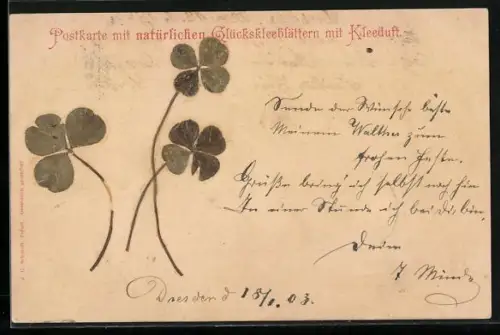 Postkarte mit natürlichen Glückskleeblättern mit Kleeduft.
Sende der Wünsche beste
Meinem Walther zum
frohen Feste.
Grüße bring' ich selbst noch hin
In einer Stunde ich bei dir bin,
Dein
Dresden d 18/1. 03.